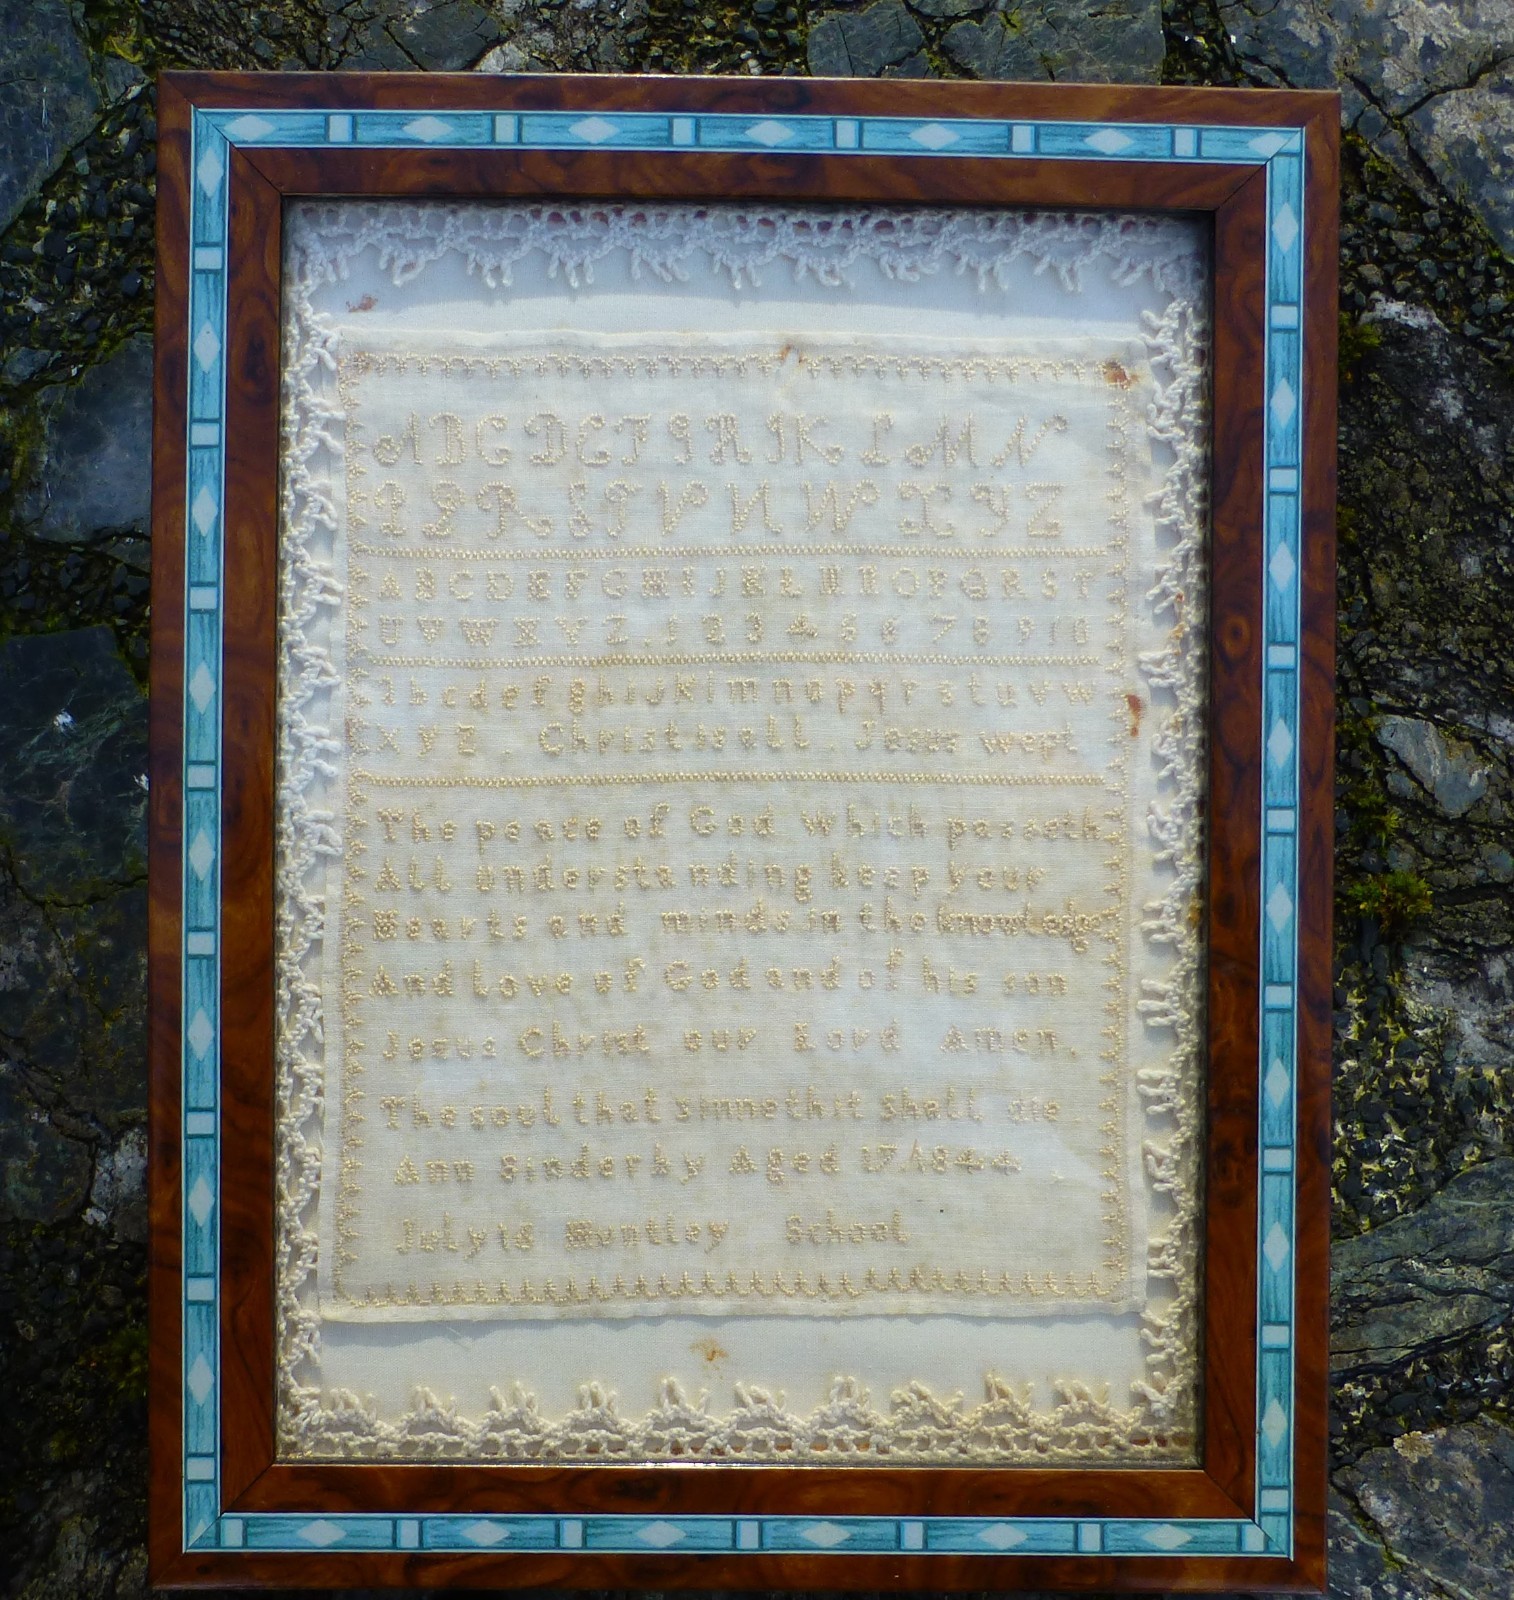 A B C D E F G H I K L M N
P Q R S T V U W X Y Z
A B C D E F G H I J K L M N O P Q R S T
U V W X Y Z . 1 2 3 4 5 6 7 8 9 10
b c d e f g h i j k l m n o p q r s t u v w
x y z . Christ is all . Jesus wept
The peace of God which passeth
All understanding keep your
Hearts and minds in the knowledge
And love of God and of his son
Jesus Christ our Lord Amen.
The soul that sinneth it shall die
Ann Sinderby Aged 17. 1844
July 18 Huntley School